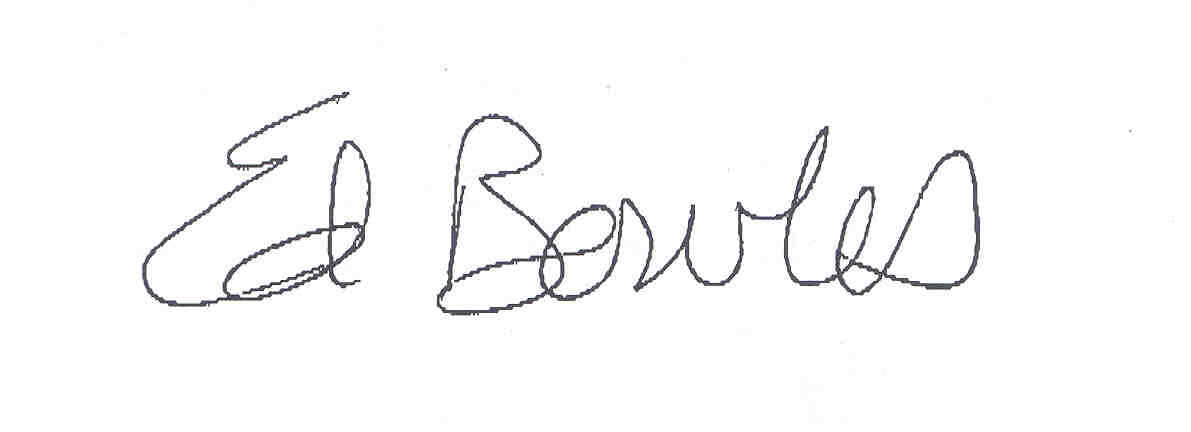 Ed Bowles